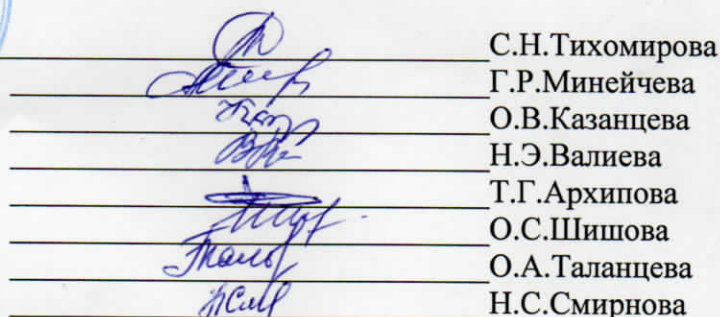 С.Н.Тихомирова
Г.Р.Минейчева
О.В.Казанцева
Н.Э.Валиева
Т.Г.Архипова
О.С.Шишова
О.А.Таланцева
Н.С.Смирнова